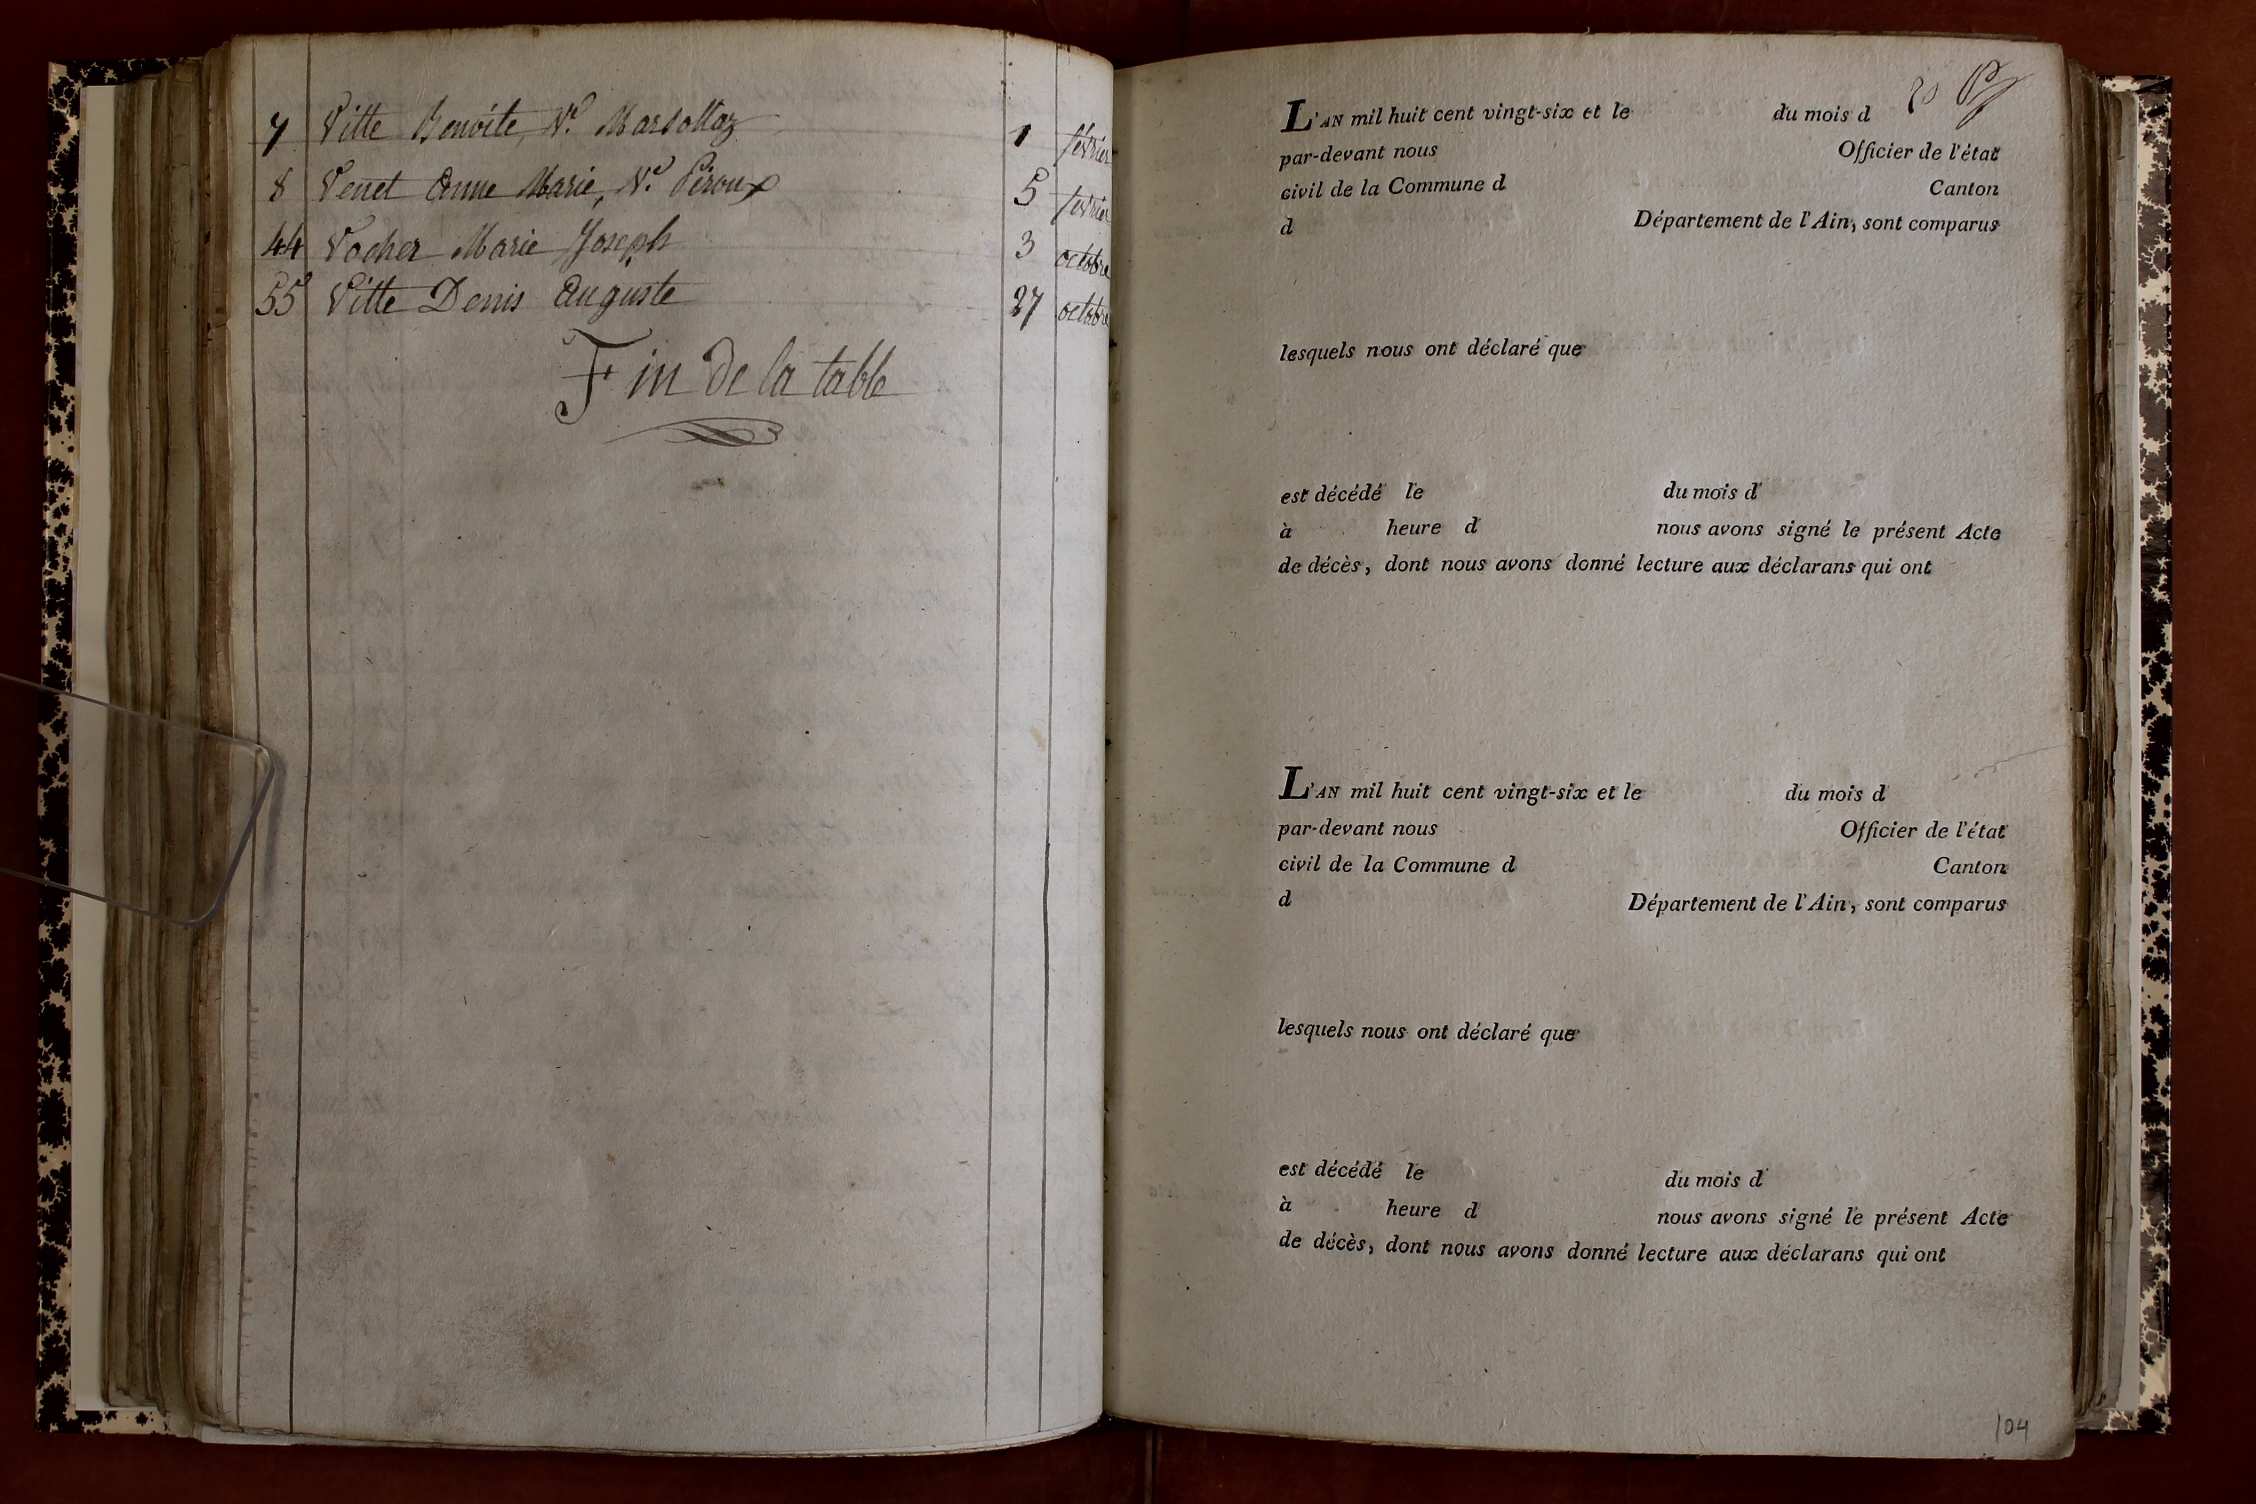 7 Vitte Benoite, Ve. Marsottaz 1 février
8 Venet Anne Marie, Ve. Piroux 5 février
44 Vocher Marie Joseph 3 octobre
55 Vitte Denis Auguste 27 octobre
Fin de la table
20
L'AN mil huit cent vingt-six et le du mois d
par-devant nous Officier de l'état
civil de la Commune d Canton
d Département de l'Ain, sont comparus
lesquels nous ont déclaré que
est décédé le du mois d
à heure d nous avons signé le présent Acte
de décès, dont nous avons donné lecture aux déclarans qui ont
L'AN mil huit cent vingt-six et le du mois d
par-devant nous Officier de l'état
civil de la Commune d Canton
d Département de l'Ain, sont comparus
lesquels nous ont déclaré que
est décédé le du mois d
à heure d nous avons signé le présent Acte
de décès, dont nous avons donné lecture aux déclarans qui ont
104